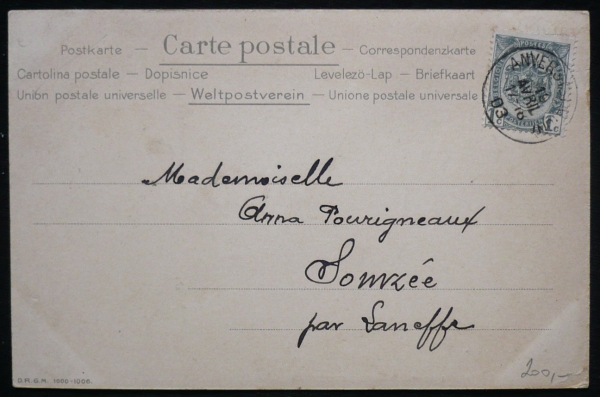 Postkarte — Carte postale — Correspondenzkarte
Cartolina postale — Dopisnice Levelezö-Lap — Briefkaart
Unión postale universelle — Weltpostverein — Unione postale universale
ANVERS
AVRIL
03
Mademoiselle
Anna Pourigneaux
Somzée
par Laneffe
D.R.G.M.
200,-